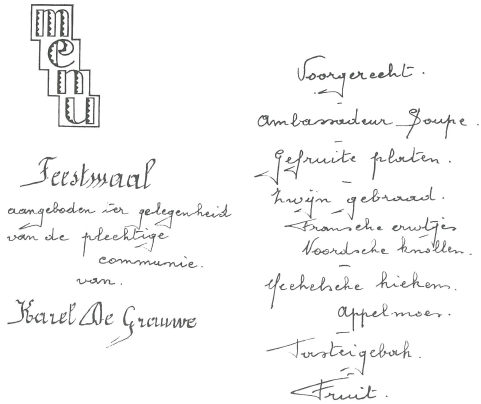 menu
Feestmaal
aangeboden ter gelegenheid
van de plechtige
communie.
van.
Karel De Grauwe
Voorgerecht.
Ambassadeur Soupe.
Gefruite platen.
Zwijn gebraad.
Fransche erwtjes
Noordsche knollen.
Mechelsche kiekens.
appelmoes.
Fruit.